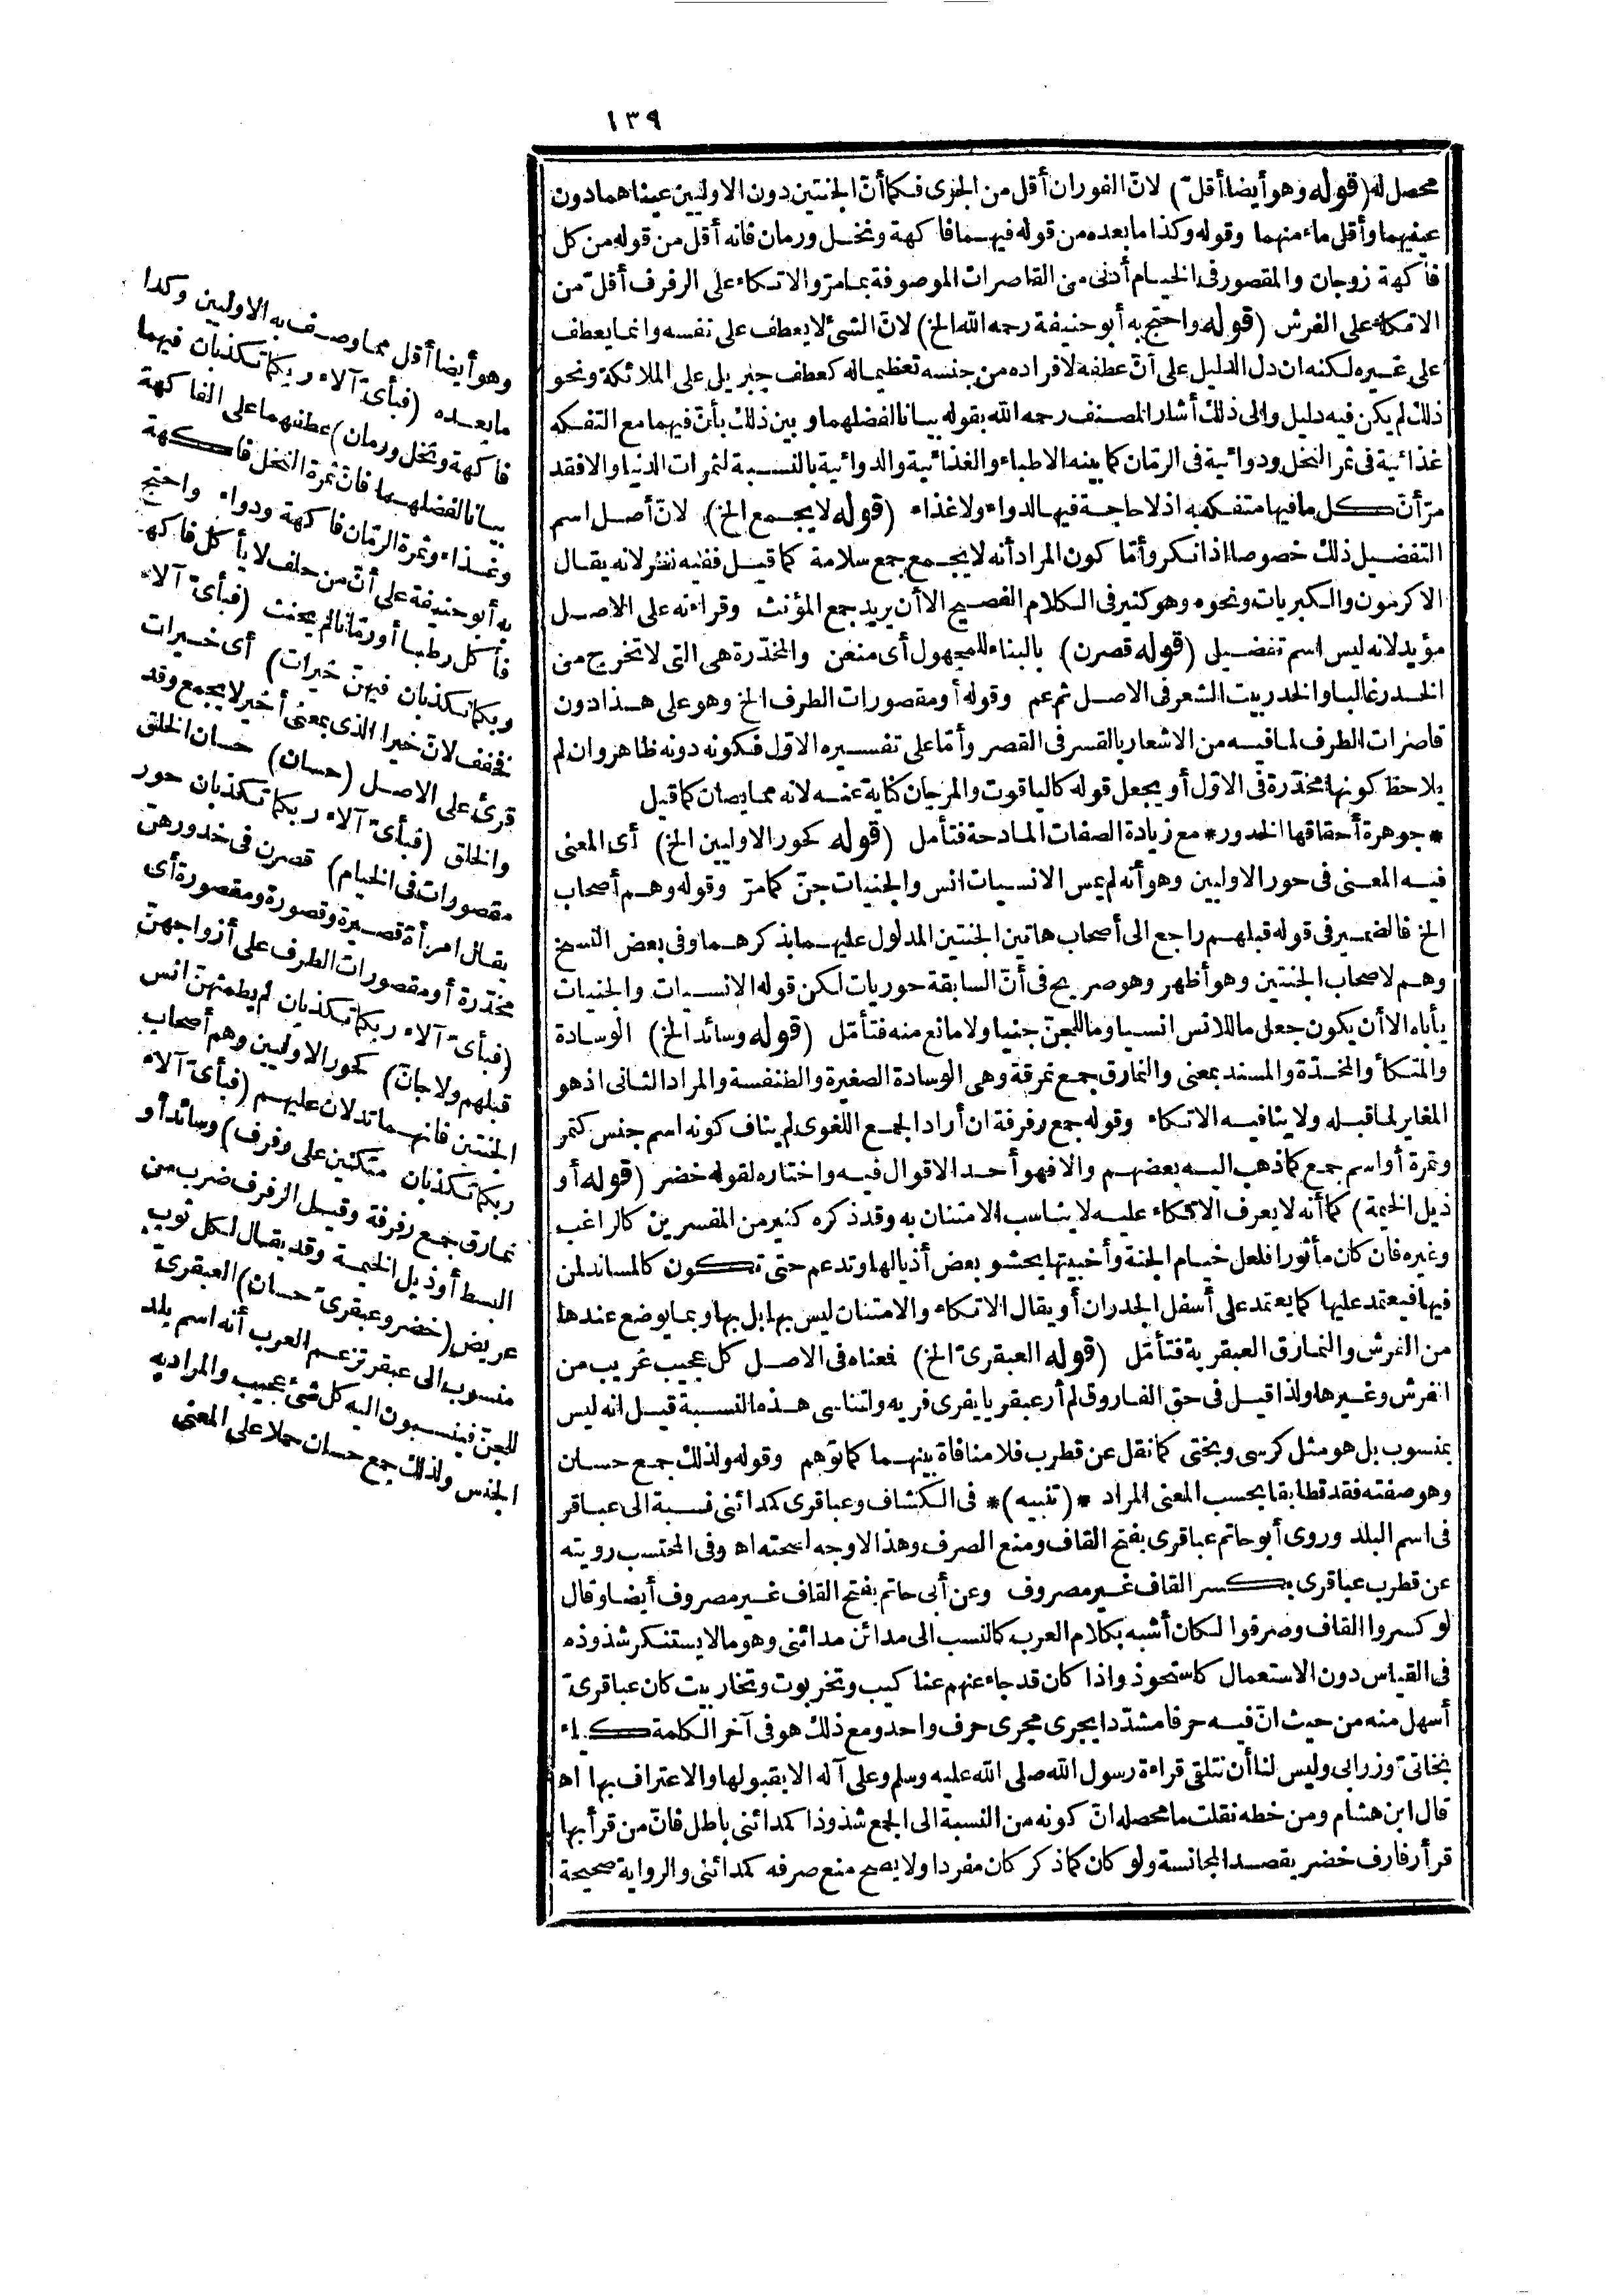 ١٣٩
محصل له (قوله وهو أيضا أقلّ) لانّ الفوران أقل من الجرى فكما أنّ الجنتين دون الاوليين عيناهما دون
عينيهما وأقل ماء منهما وقوله وكذا ما بعده من قوله فيهما فاكهة ونخل ورمان فانه أقل من قوله من كل
فاكهة زوجان والمقصور فى الخيام أدنى من القاصرات الموصوفة بمامرّ والاتكاء على الرفرف أقلّ من
الاتكاء على الفرش (قوله واحتج به أبو حنيفة رحمه الله الخ) لانّ الشئ لا يعطف على نفسه وانما يعطف
على غيره لكنه ان دل الدليل على أنّ عطفه لافراده من جنسه تعظيما له كعطف جبريل على الملائكة ونحو
ذلك لم يكن فيه دليل والى ذلك أشار المصنف رحمه الله بقوله بيانا لفضلهما وبين ذلك بأنّ فيهما مع التفكه
غذائية فى ثمر النخل ودوائية فى الرمّان كما بينه الاطباء والغذائية والدوائية بالنسبة لثمرات الدنيا والا فقد
مرّ أنّ كل ما فيها متفكه به اذ لا حاجة فيها لدواء ولا غذاء (قوله لا يجمع الخ) لانّ أصل اسم
التفضيل ذلك خصوصا اذا نكر وأمّا كون المراد أنه لا يجمع جمع سلامة كما قيل ففيه نظر لانه يقال
الاكرمون والكبريات ونحوه وهو كثير فى الكلام الفصيح الا أن يريد جمع المؤنث وقراءته على الاصل
مؤيد لانه ليس اسم تفضيل (قوله قصرن) بالبناء للمجهول أى منعن والمخدّرة هى التى لا تخرج من
الخدر غالبا والخدر بيت الشعر فى الاصل ثم عم وقوله أو مقصورات الطرف الخ وهو على هذا دون
قاصرات الطرف لما فيه من الاشعار بالقسر فى القصر وأمّا على تفسيره الاوّل فكونه دونه ظاهر وان لم
يلاحظ كونها مخدّرة فى الاوّل أو يجعل قوله كالياقوت والمرجان كناية عنه لانه مما يصان كما قيل
* جوهرة أحقاقها الخدور * مع زيادة الصفات المادحة فتأمل (قوله كحور الاوليين الخ) أى المعنى
فيه المعنى فى حور الاوليين وهو أنه لم يمس الانسيات انس والجنيات جنّ كما مرّ وقوله وهم أصحاب
الخ فالضمير فى قوله قبلهم راجع الى أصحاب هاتين الجنتين المدلول عليهما بذكرهما وفى بعض النسخ
وهم لاصحاب الجنتين وهو أظهر وهو صريح فى أنّ السابقة حوريات لكن قوله الانسيات والجنيات
يأباه الا أن يكون جعل ما للانس انسيا وما للجنّ جنيا ولا مانع منه فتأمّل (قوله وسائد الخ) الوسادة
والمتكأ والمخدّة والمسند بمعنى والنمارق جمع نمرقة وهى الوسادة الصغيرة والطنفسة والمراد الثانى اذ هو
المغاير لما قبله ولا ينافيه الاتكاء وقوله جمع رفرفة ان أراد الجمع اللغوى لم يناف كونه اسم جنس كتمر
وتمرة أو اسم جمع كما ذهب اليه بعضهم والا فهو أحد الاقوال فيه واختاره لقوله خضر (قوله أو
ذيل الخيمة) كما أنه لا يعرف الاتكاء عليه لا يناسب الامتنان به وقد ذكره كثير من المفسرين كالراغب
وغيره فان كان مأثورا فلعل خيام الجنة وأخبيتها يحشو بعض أذيالها وتدعم حتى تكون كالمساند لمن
فيها فيعتمد عليها كما يعتمد على أسفل الجدران أو يقال الاتكاء والامتنان ليس بها بل بها وبما يوضع عندها
من الفرش والنمارق العبقرية فتأمّل (قوله العبقرىّ الخ) فمعناه فى الاصل كل عجيب غريب من
الفرش وغيرها ولذا قيل فى حق الفاروق لم أر عبقريا يفرى فريه ولتناسى هذه النسبة قيل انه ليس
بمنسوب بل هو مثل كرسى وبختى كما نقل عن قطرب فلا منافاة بينهما كما توهم وقوله ولذلك جمع حسان
وهو صفته فقد تطابقا بحسب المعنى المراد * (تنبيه) * فى الكشاف وعباقرى كمدائنى نسبة الى عباقر
فى اسم البلد وروى أبو حاتم عباقرى بفتح القاف ومنع الصرف وهذا لا وجه لصحته اه وفى المحتسب رويته
عن قطرب عباقرى بكسر القاف غير مصروف وعن أبى حاتم بفتح القاف غير مصروف أيضا وقال
لو كسروا القاف وصرفوا لكان أشبه بكلام العرب كالنسب الى مدائن مدائنى وهو ما لا يستنكر شذوذه
فى القياس دون الاستعمال كاستحوذ واذا كان قد جاء عنهم عناكيب وتخربوت وتخاربيت كان عباقرىّ
أسهل منه من حيث انّ فيه حرفا مشدّدا يجرى مجرى حرف واحد ومع ذلك هو فى آخر الكلمة كياء
بخاتىّ وزرابى وليس لنا أن نتلقى قراءة رسول الله صلى الله عليه وسلم وعلى آله الا بقبولها والاعتراف بها اه
قال ابن هشام ومن خطه نقلت ما محصله انّ كونه من النسبة الى الجمع شذوذا كمدائنى باطل فانّ من قرأ بها
قرأ رفارف خضر بقصد المجانسة ولو كان كما ذكر كان مفردا ولا يصح منع صرفه كمدائنى والرواية صحيحة
وهو أيضا أقل مما وصف به الاوليين وكذا
ما بعده (فبأىّ آلاء ربكما تكذبان فيهما
فاكهة ونخل ورمان) عطفهما على الفاكهة
بيانا لفضلهما فانّ ثمرة النخل فاكهة
وغذاء وثمرة الرمّان فاكهة ودواء واحتج
به أبو حنيفة على أنّ من حلف لا يأكل فاكهة
فأكل رطبا أو رمّانا لم يحنث (فبأىّ آلاء
ربكما تكذبان فيهنّ خيرات) أى خيرات
فخفف لانّ خيرا الذى بمعنى أخير لا يجمع وقد
قرئ على الاصل (حسان) حسان الخلق
والخلق (فبأىّ آلاء ربكما تكذبان حور
مقصورات فى الخيام) قصرن فى خدورهنّ
يقال امرأة قصيرة وقصورة ومقصورة أى
مخدّرة أو مقصورات الطرف على أزواجهنّ
(فبأىّ آلاء ربكما تكذبان لم يطمثهنّ انس
قبلهم ولا جانّ) كحور الاوليين وهم أصحاب
الجنتين فانهما تدلان عليهم (فبأىّ آلاء
ربكما تكذبان متكئين على رفرف) وسائد أو
نمارق جمع رفرفة وقيل الرفرف ضرب من
البسط أو ذيل الخيمة وقد يقال لكل ثوب
عريض (خضر وعبقرىّ حسان) العبقرىّ
منسوب الى عبقر تزعم العرب أنه اسم بلد
للجنّ فينسبون اليه كل شئ عجيب والمراد به
الجنس ولذلك جمع حسان حملا على المعنى